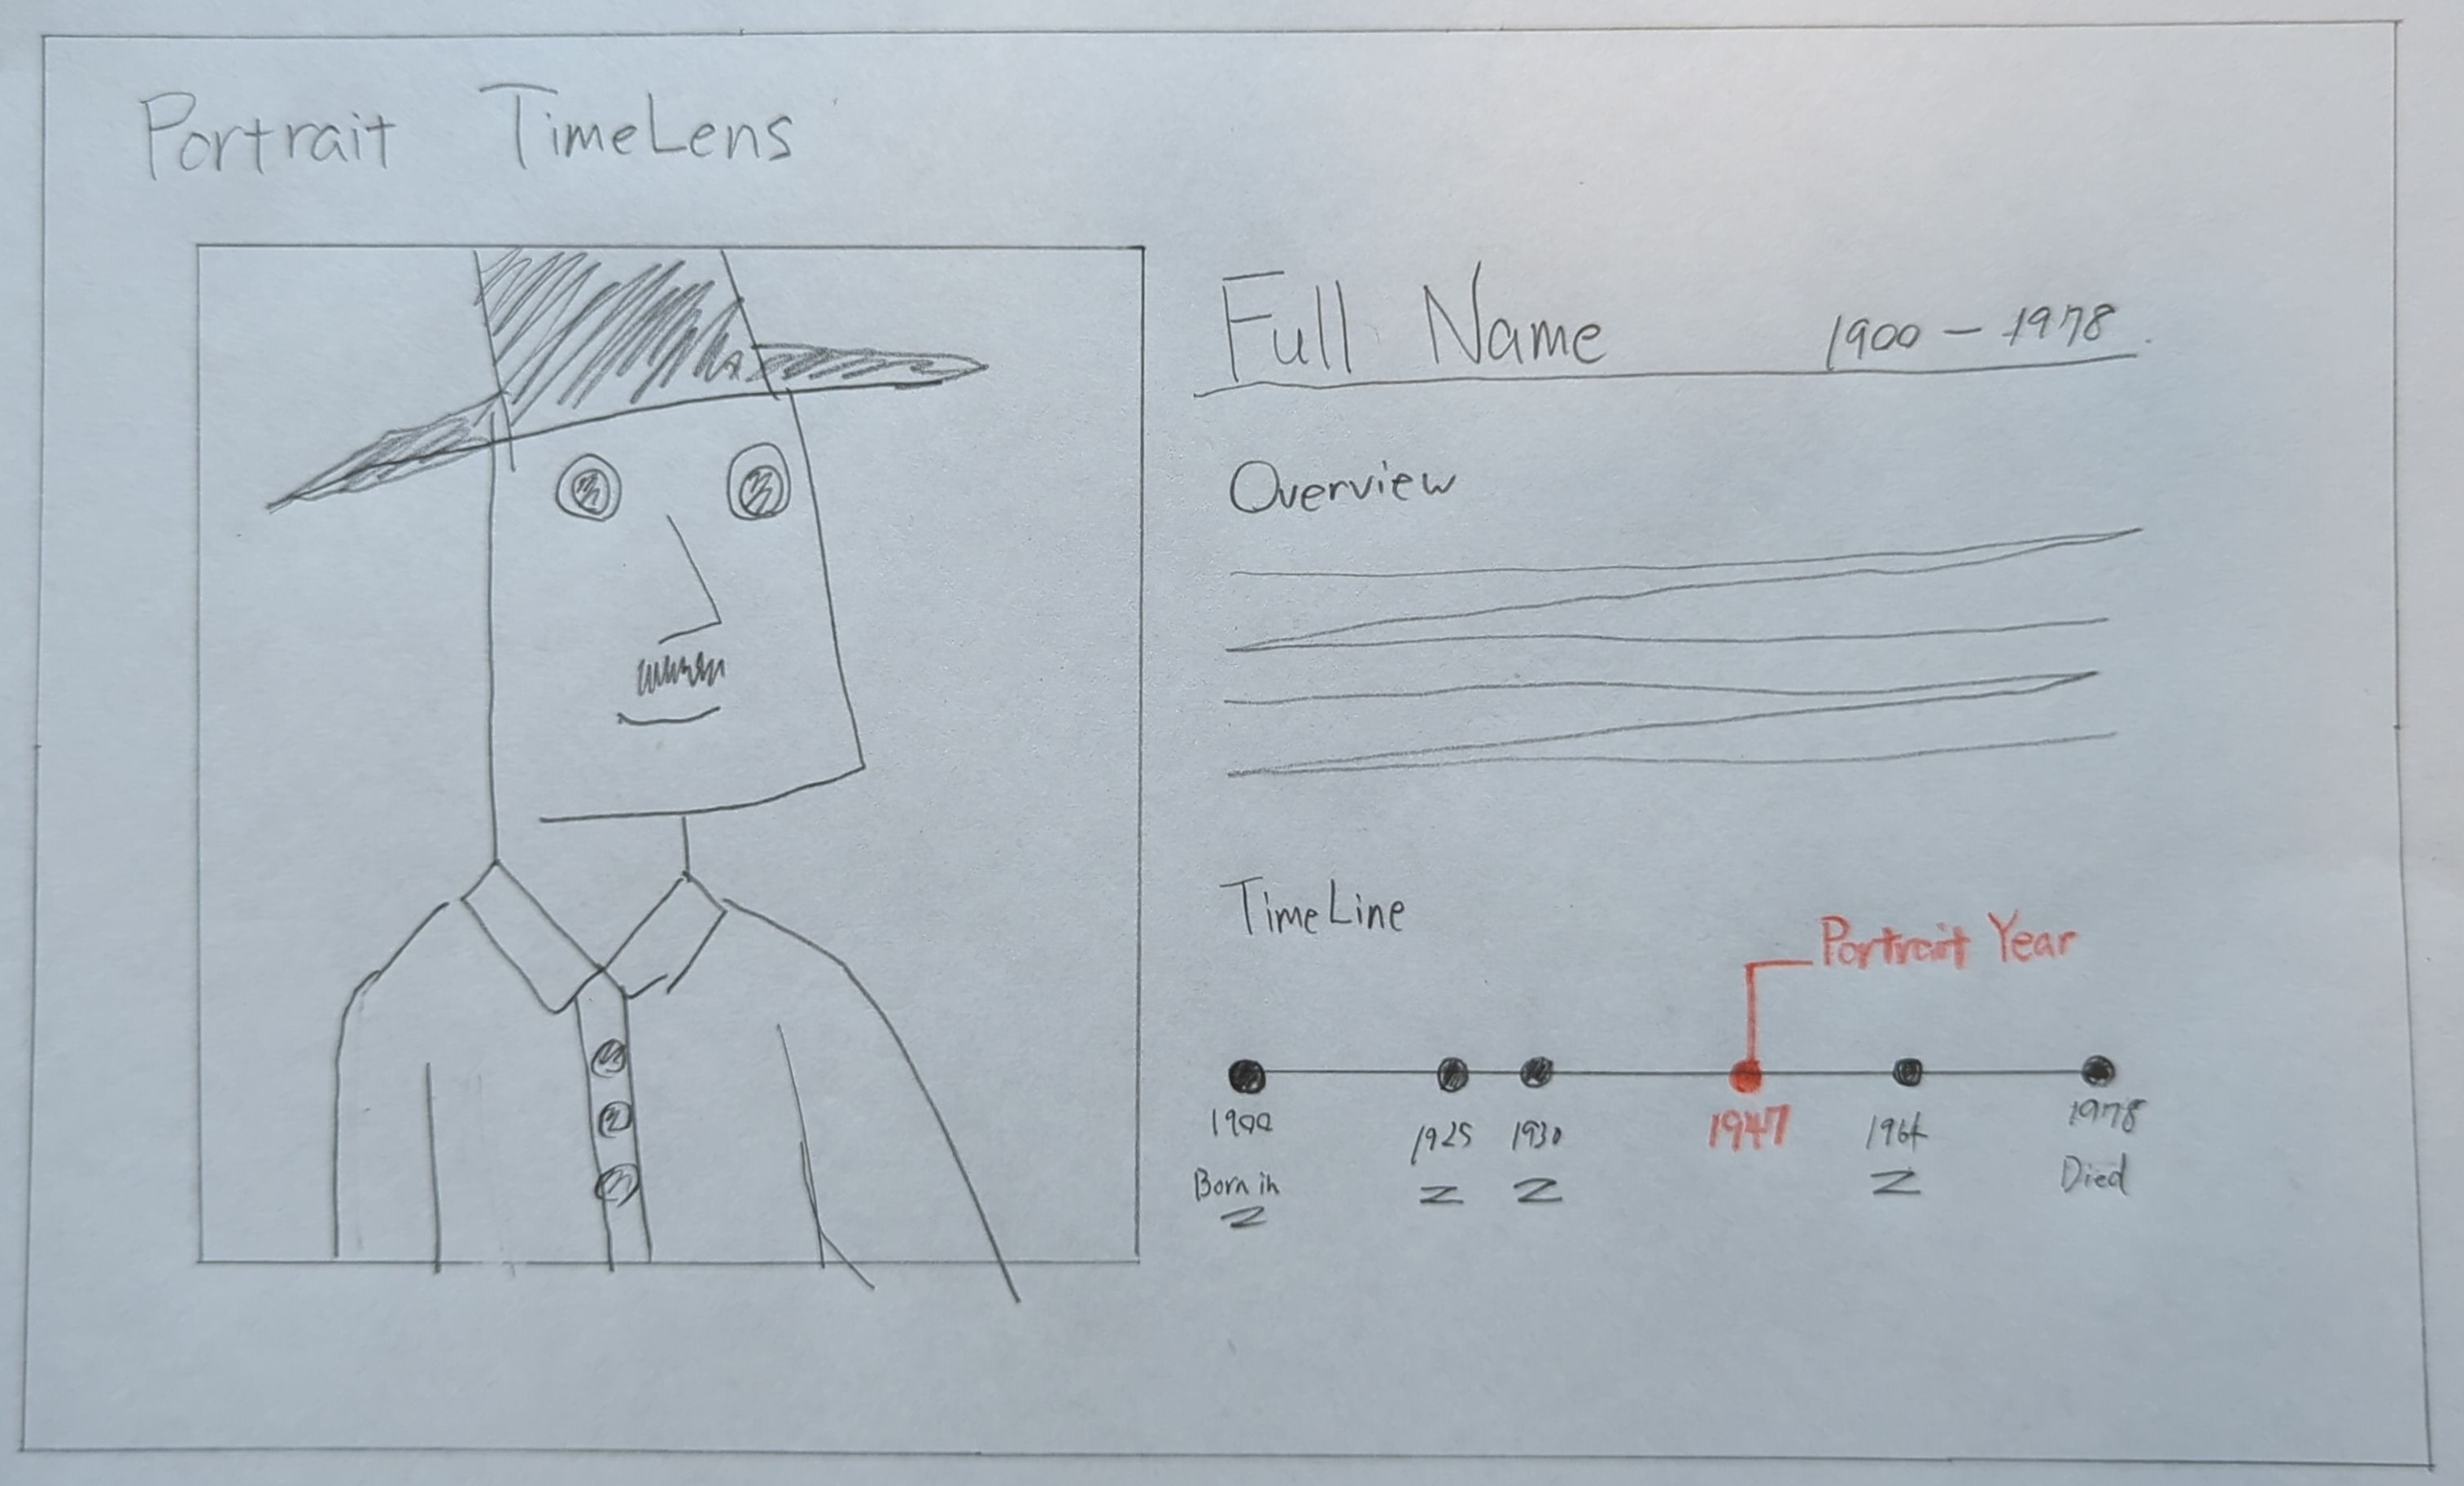 Portrait TimeLens
Full Name 1900 - 1978
Overview
TimeLine
Portrait Year
1900 1925 1930 1947 1964 1978
Born in Died